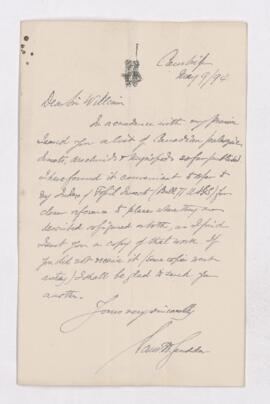 Cambridge
May 9/94
Dear Sir William
In accordance with my promise
I send you a list of Canadian palaeozoic
insects, arachnids & myriapods so far published
I have found it convenient to refer to
my Index of Fossil Insects (Bull. 71 U.S.G.S.) for
closer reference to places where they are
described & figured or both, as I find
I sent you a copy of that work. If
you did not receive it (some copies went
astray) I shall be glad to send you
another.
Yours very sincerely
Sam H Scudder